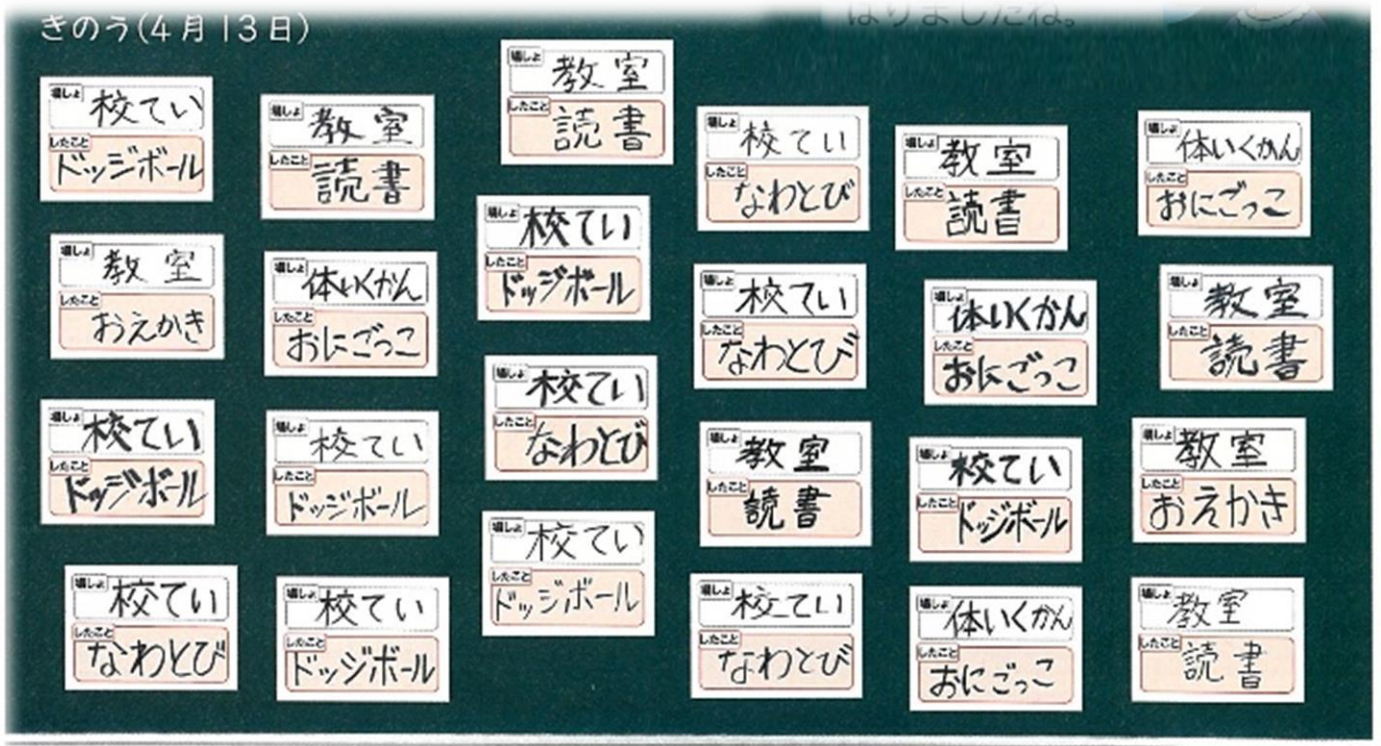 きのう(4月13日)
ばりましたね。
場しょ 校てい
したこと ドッジボール
場しょ 教室
したこと おえかき
場しょ 校てい
したこと ドッジボール
場しょ 校てい
したこと なわとび
場しょ 教室
したこと 読書
場しょ 体いくかん
したこと おにごっこ
場しょ 校てい
したこと ドッジボール
場しょ 校てい
したこと ドッジボール
場しょ 教室
したこと 読書
場しょ 校てい
したこと ドッジボール
場しょ 校てい
したこと なわとび
場しょ 校てい
したこと ドッジボール
場しょ 校てい
したこと なわとび
場しょ 校てい
したこと なわとび
場しょ 教室
したこと 読書
場しょ 校てい
したこと なわとび
場しょ 教室
したこと 読書
場しょ 体いくかん
したこと おにごっこ
場しょ 校てい
したこと ドッジボール
場しょ 体いくかん
したこと おにごっこ
場しょ 体いくかん
したこと おにごっこ
場しょ 教室
したこと 読書
場しょ 教室
したこと おえかき
場しょ 教室
したこと 読書